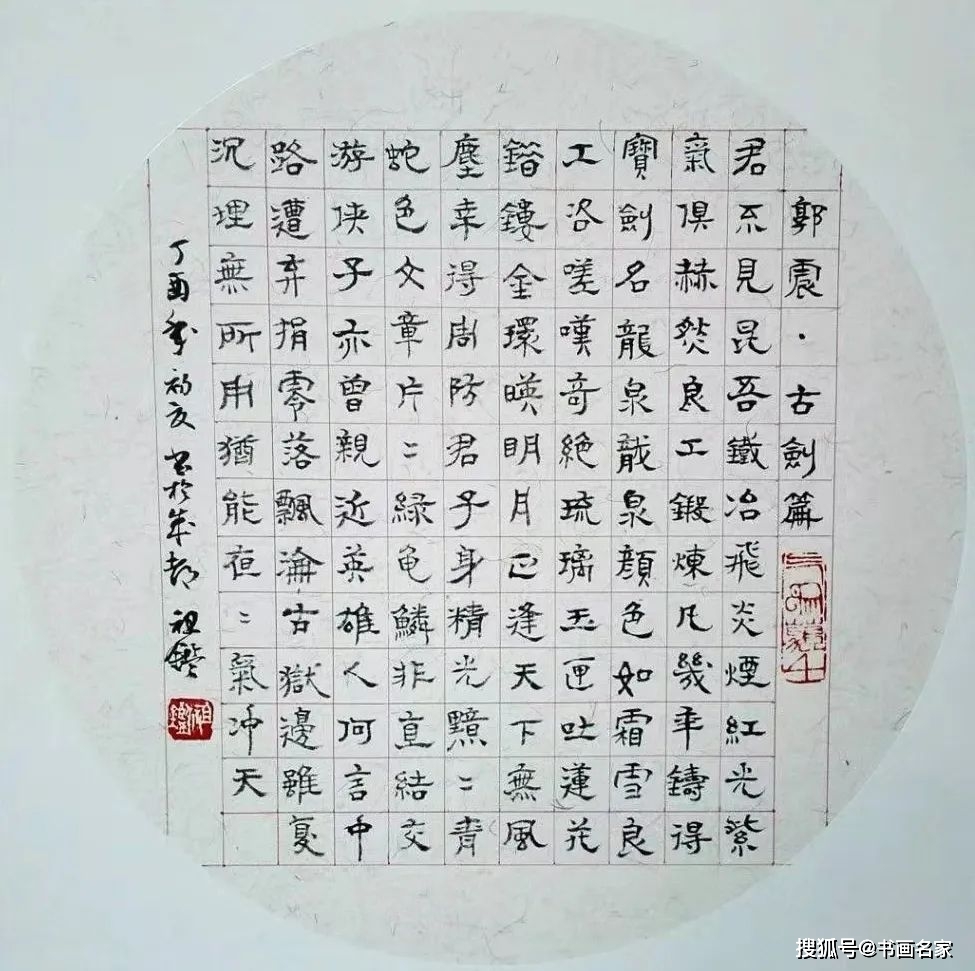 郭震·古劍篇
君不見昆吾鐵冶飛炎煙紅光紫
氣俱赫然良工鍛煉凡幾年鑄得
寶劍名龍泉龍泉顏色如霜雪良
工咨嗟嘆奇絕琉璃玉匣吐蓮花
錯鏤金環暎明月正逢天下無風
塵幸得周防君子身精光黯〻青
蛇色文章片〻綠龟鱗非直結交
游俠子亦曾親近英雄人何言中
路遭弃捐零落飄淪古獄邊雖夏
沉埋無所用猶能夜〻氣冲天
丁酉年初夏書於成都 祖鑑
祖鑑
搜狐号@书画名家